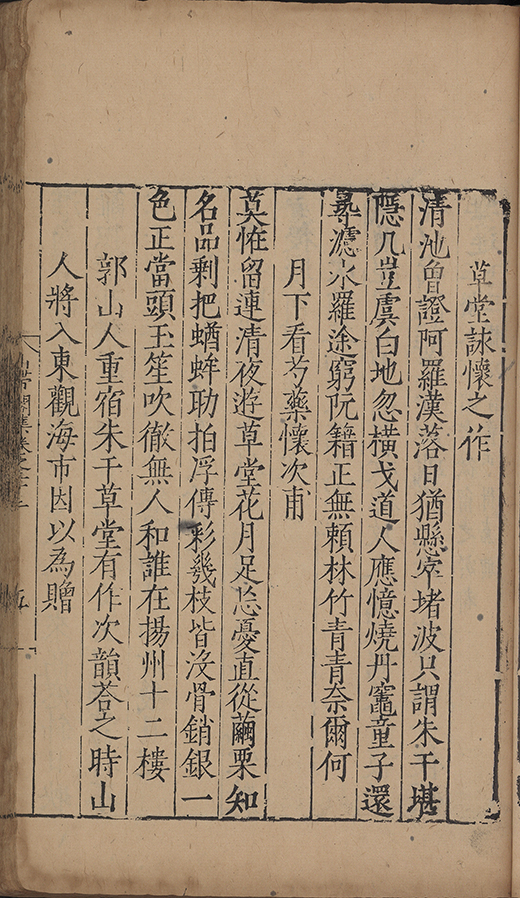 草堂詠懷之作
清池曾證阿羅漢落日猶懸窣堵波只謂朱干堪
隱几豈虞白地忽橫戈道人應憶燒丹竈童子還
尋濾水羅途窮阮籍正無賴林竹青青奈爾何
月下看芍藥懷次甫
莫恠留連清夜遊草堂花月足忘憂直從繭栗知
名品剩把蝤蛑助拍浮傳彩幾枝皆沒骨銷銀一
色正當頭玉笙吹徹無人和誰在揚州十二樓
郭山人重宿朱干草堂有作次韻荅之時山
人將入東觀海市因以為贈
集卷之
五